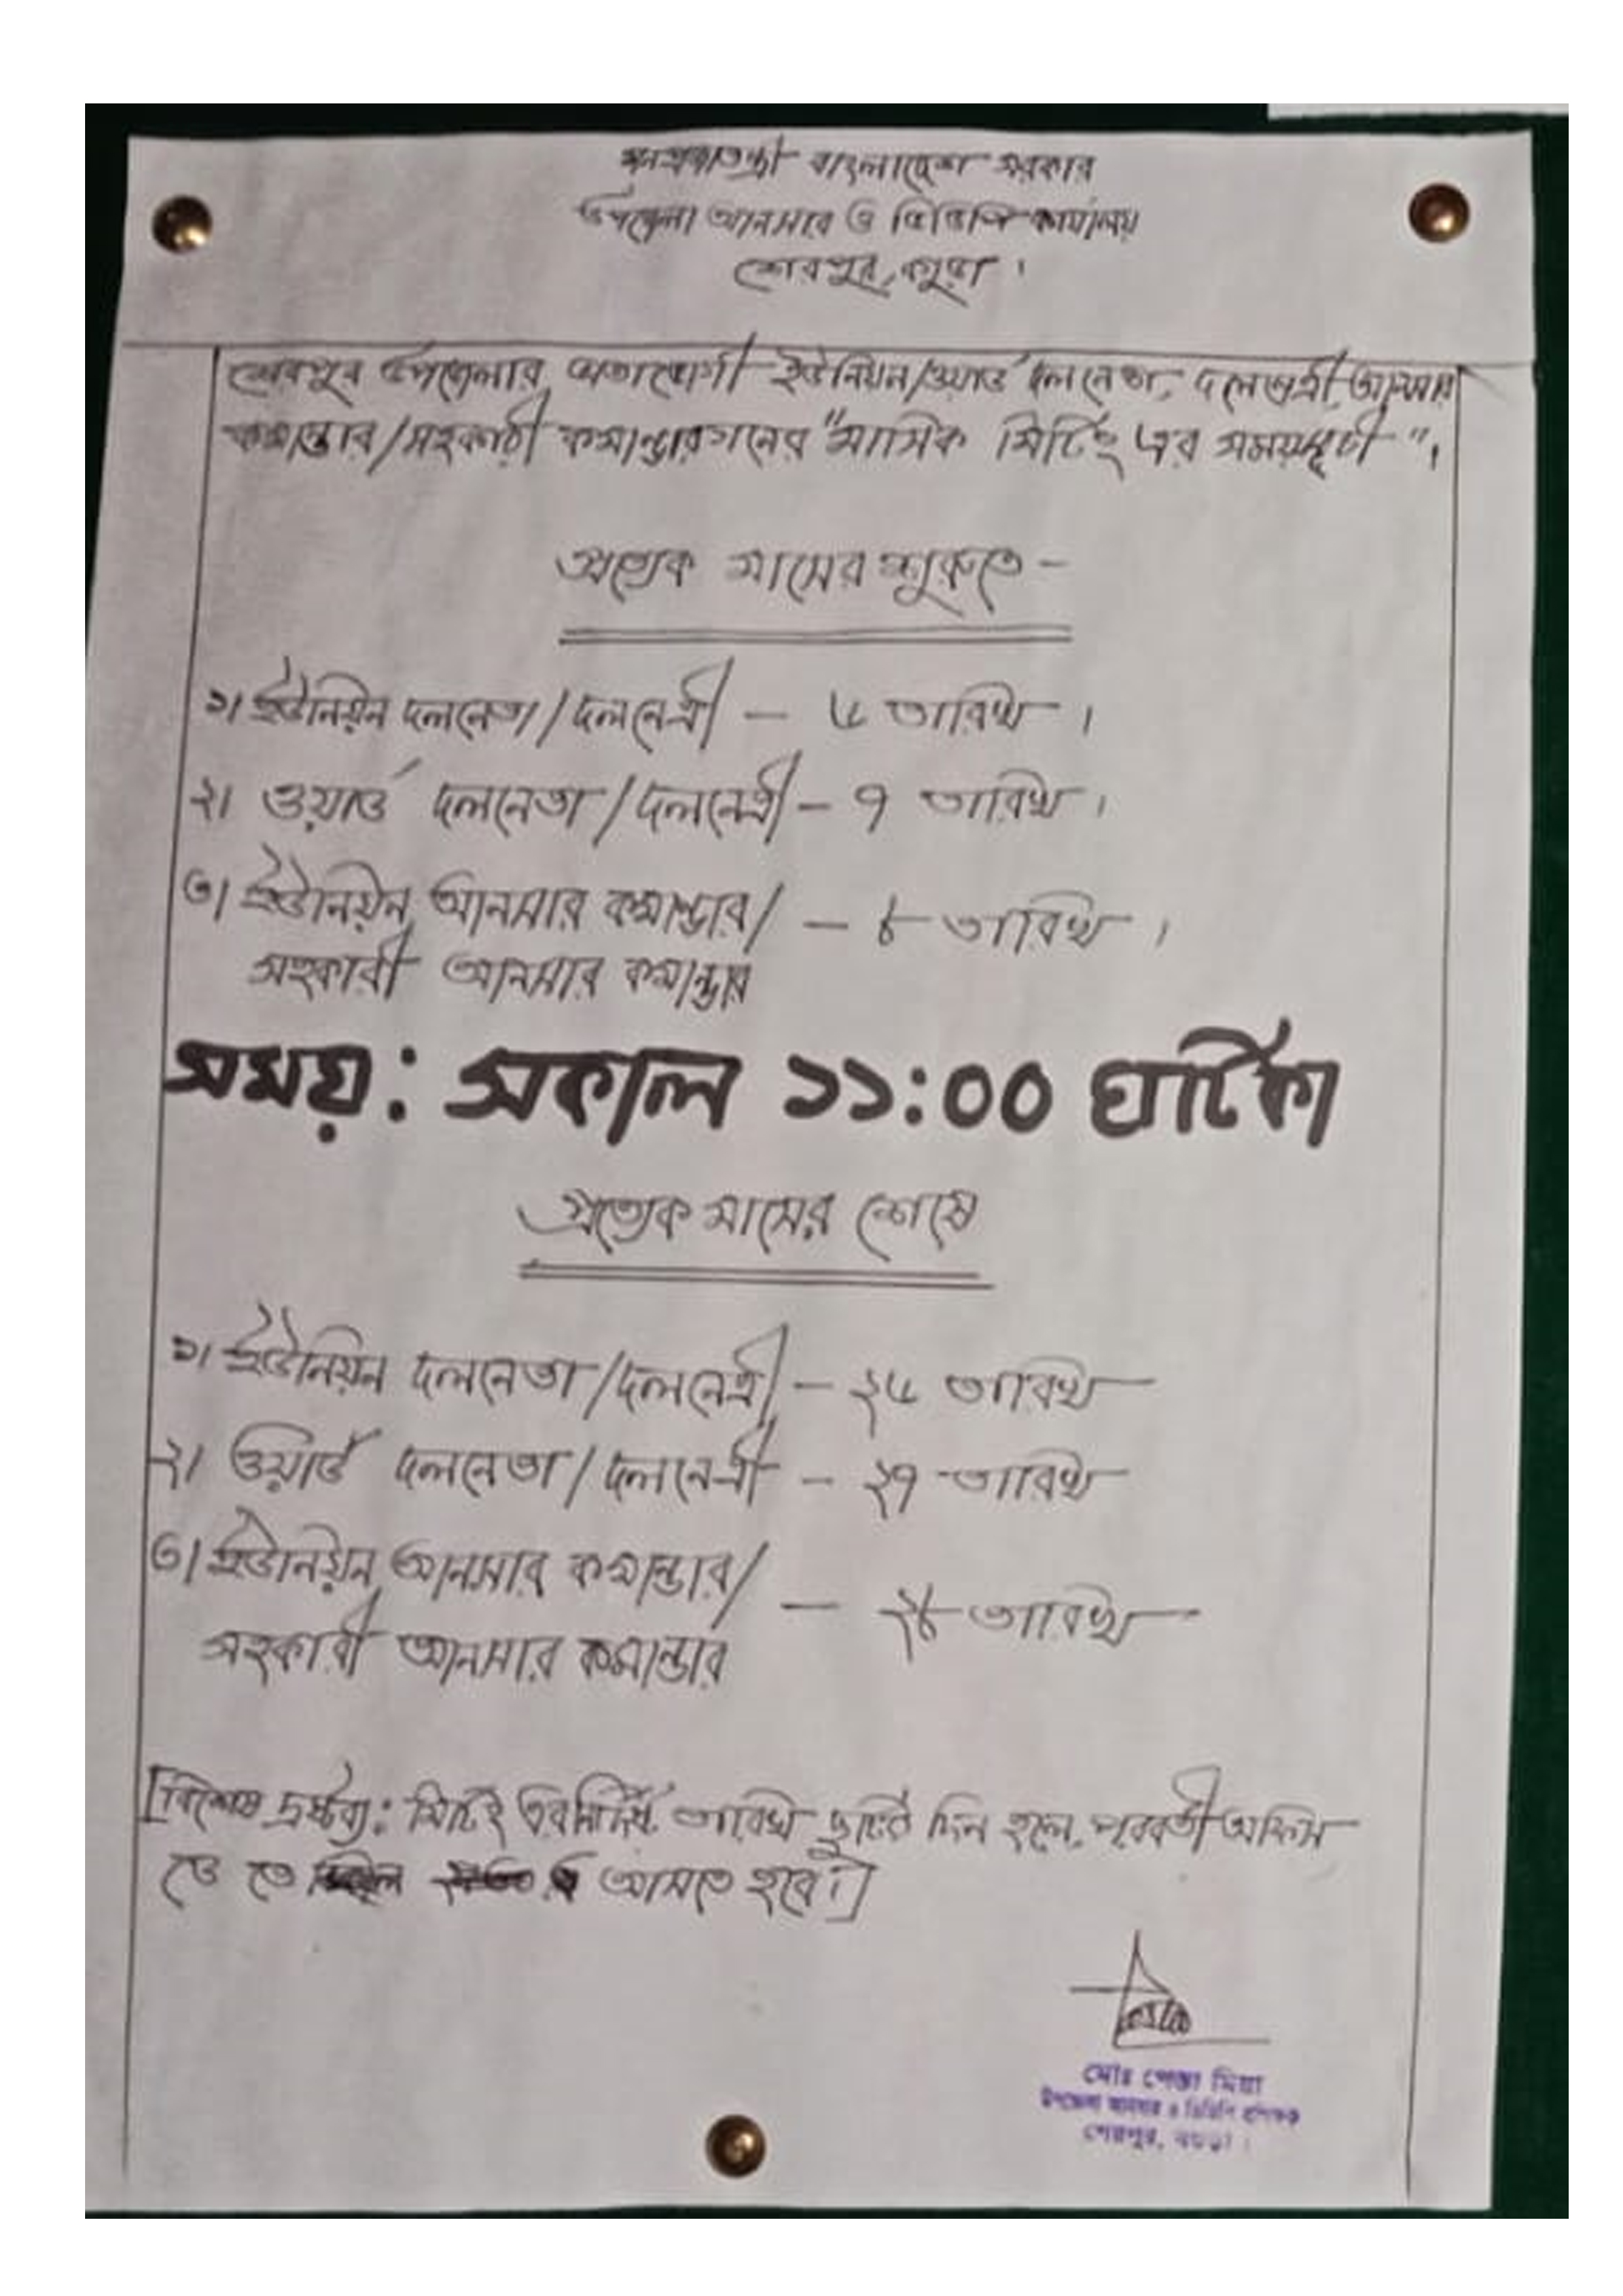 গনপ্রজাতন্ত্রী বাংলাদেশ সরকার
উপজেলা আনসার ও ভিডিপি কার্যালয়
শেরপুর, বগুড়া ।
শেরপুর উপজেলার ভাতাভোগী ইউনিয়ন/ওয়ার্ড দলনেতা, দলনেত্রী, আনসার
কমান্ডার/সহকারী কমান্ডারগনের "মাসিক মিটিং এর সময়সূচী"।
প্রত্যেক মাসের শুরুতে -
১। ইউনিয়ন দলনেতা/দলনেত্রী - ৬ তারিখ ।
২। ওয়ার্ড দলনেতা/দলনেত্রী - ৭ তারিখ ।
৩। ইউনিয়ন আনসার কমান্ডার/ - ৮ তারিখ ।
সহকারী আনসার কমান্ডার
সময়: সকাল ১১:০০ ঘটিকা
প্রত্যেক মাসের শেষে
১। ইউনিয়ন দলনেতা/দলনেত্রী - ২৬ তারিখ
২। ওয়ার্ড দলনেতা/দলনেত্রী - ২৭ তারিখ
৩। ইউনিয়ন আনসার কমান্ডার/ - ২৮ তারিখ
সহকারী আনসার কমান্ডার
[বিশেষ দ্রষ্টব্য: মিটিং এর তারিখ ছুটির দিন হলে, পরবর্তী অফিস
ডে তে আসতে হবে।]
মোঃ মিয়া
উপজেলা আনসার ও ভিডিপি প্রশিক্ষক
শেরপুর, বগুড়া ।